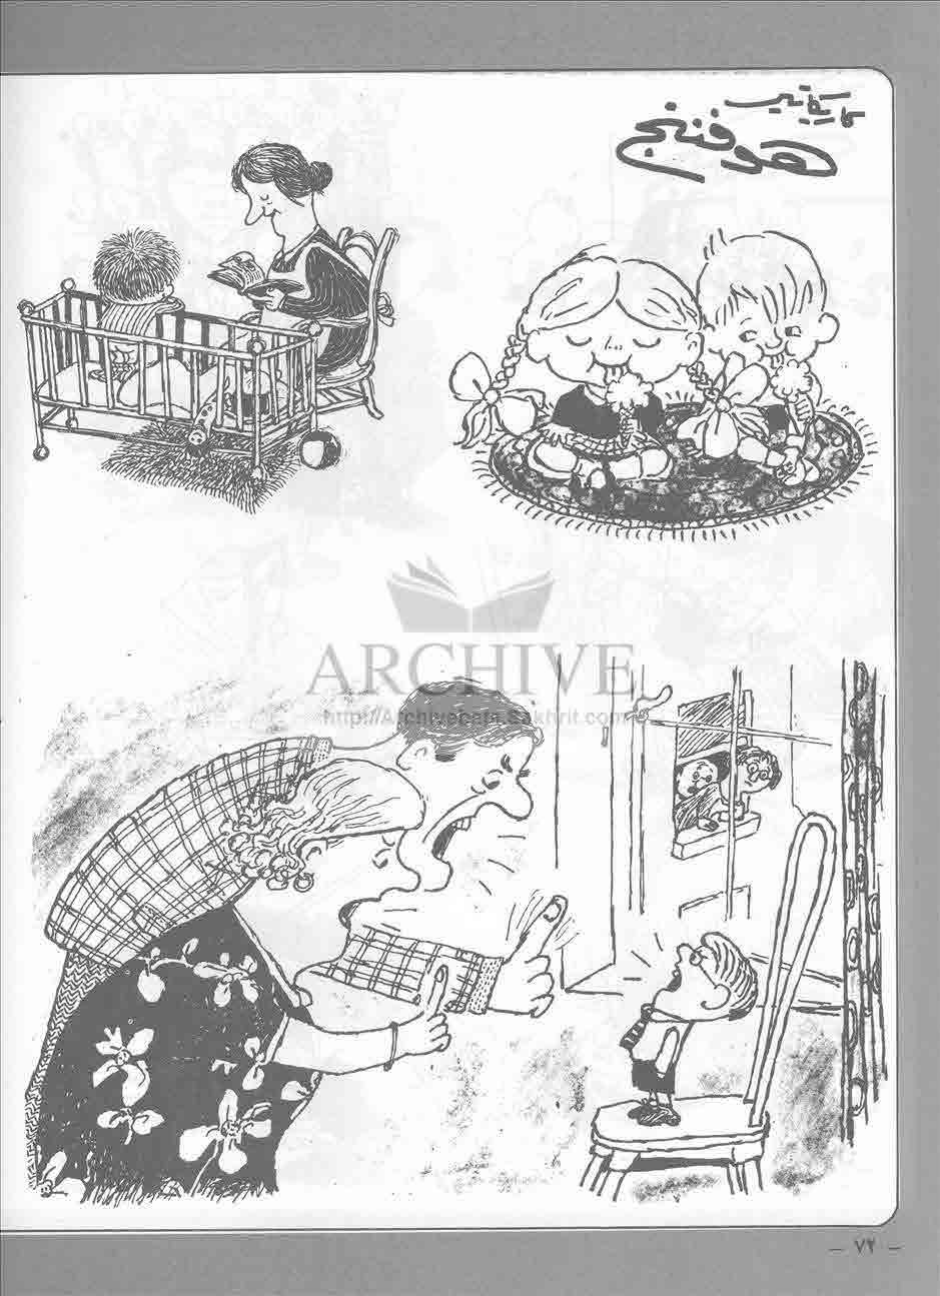 كاريكاتير
هوفننج
ARCHIVE
http://Archivebeta.Sakhrit.com
- ٧٢ -